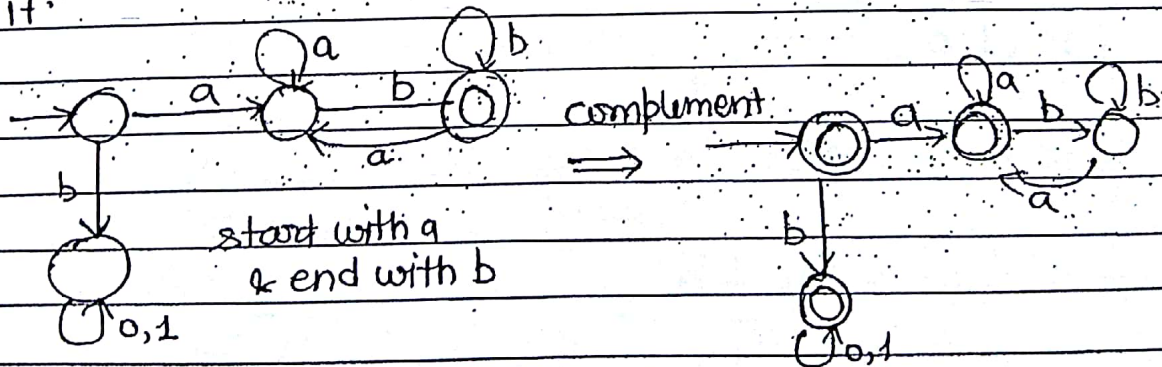 it.
a
b
a
b
a
b
start with a
& end with b
0,1
complement
a
a
b
b
a
b
0,1